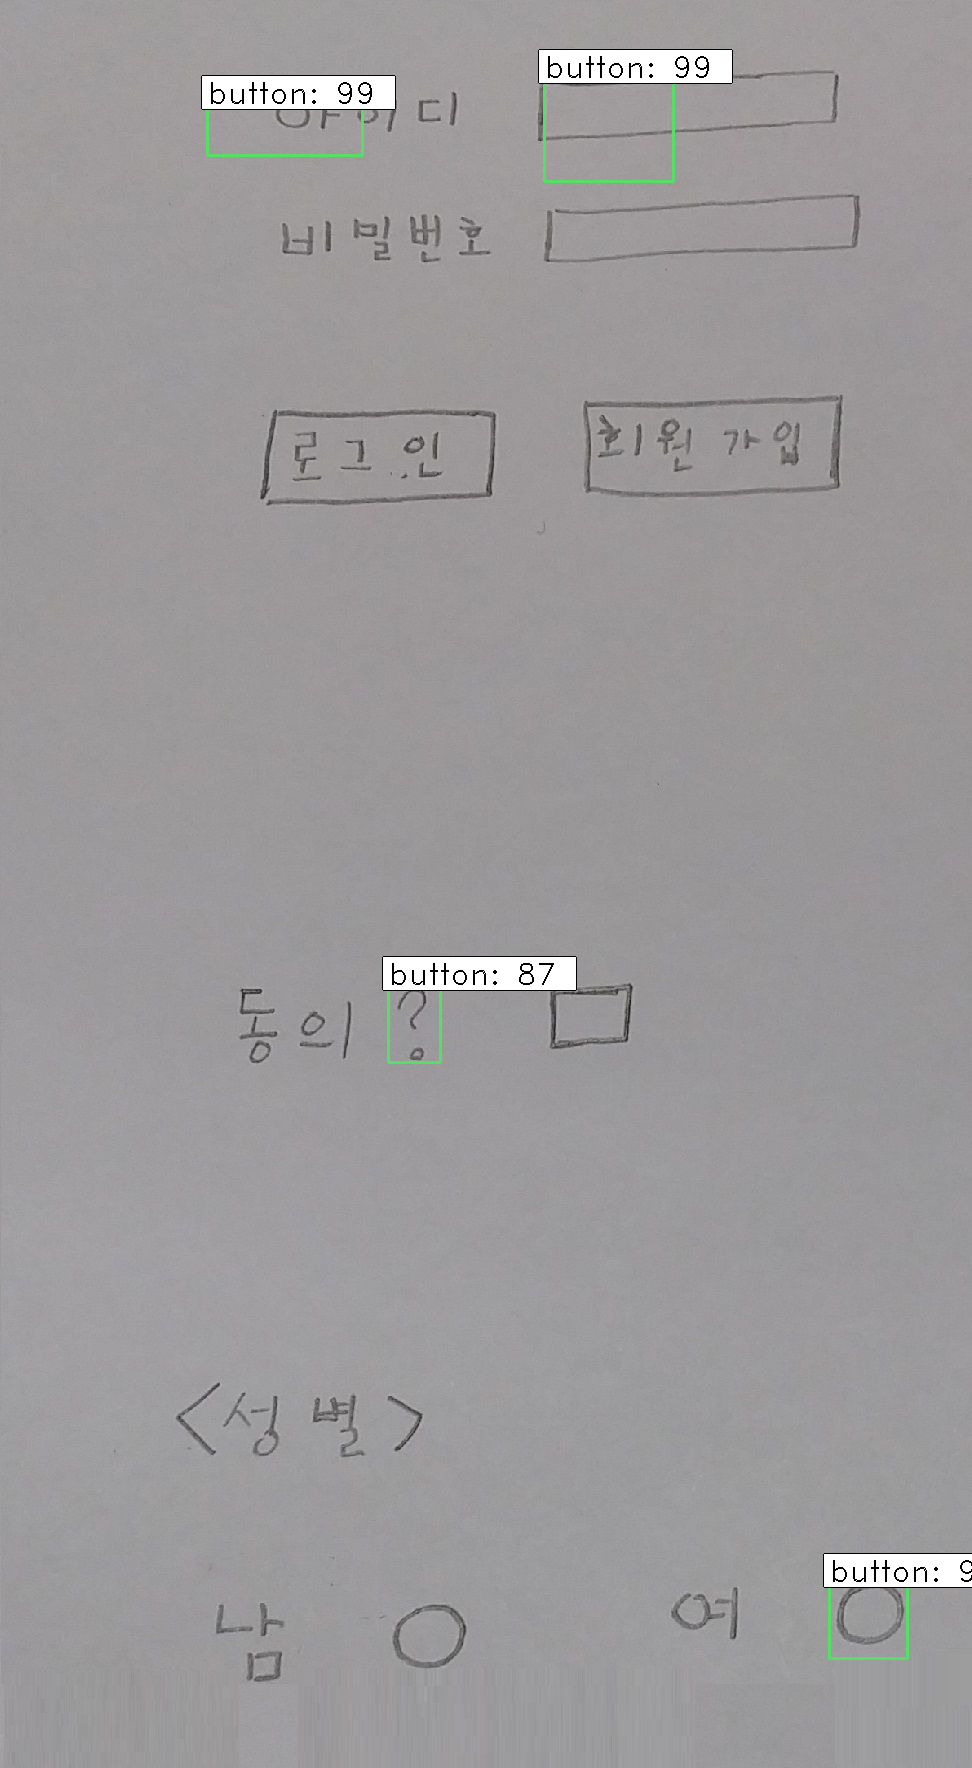 button: 99 button: 99
아이디
비밀번호
로그인 회원가입
button: 87
동의?
<성별>
button: 9
남 여